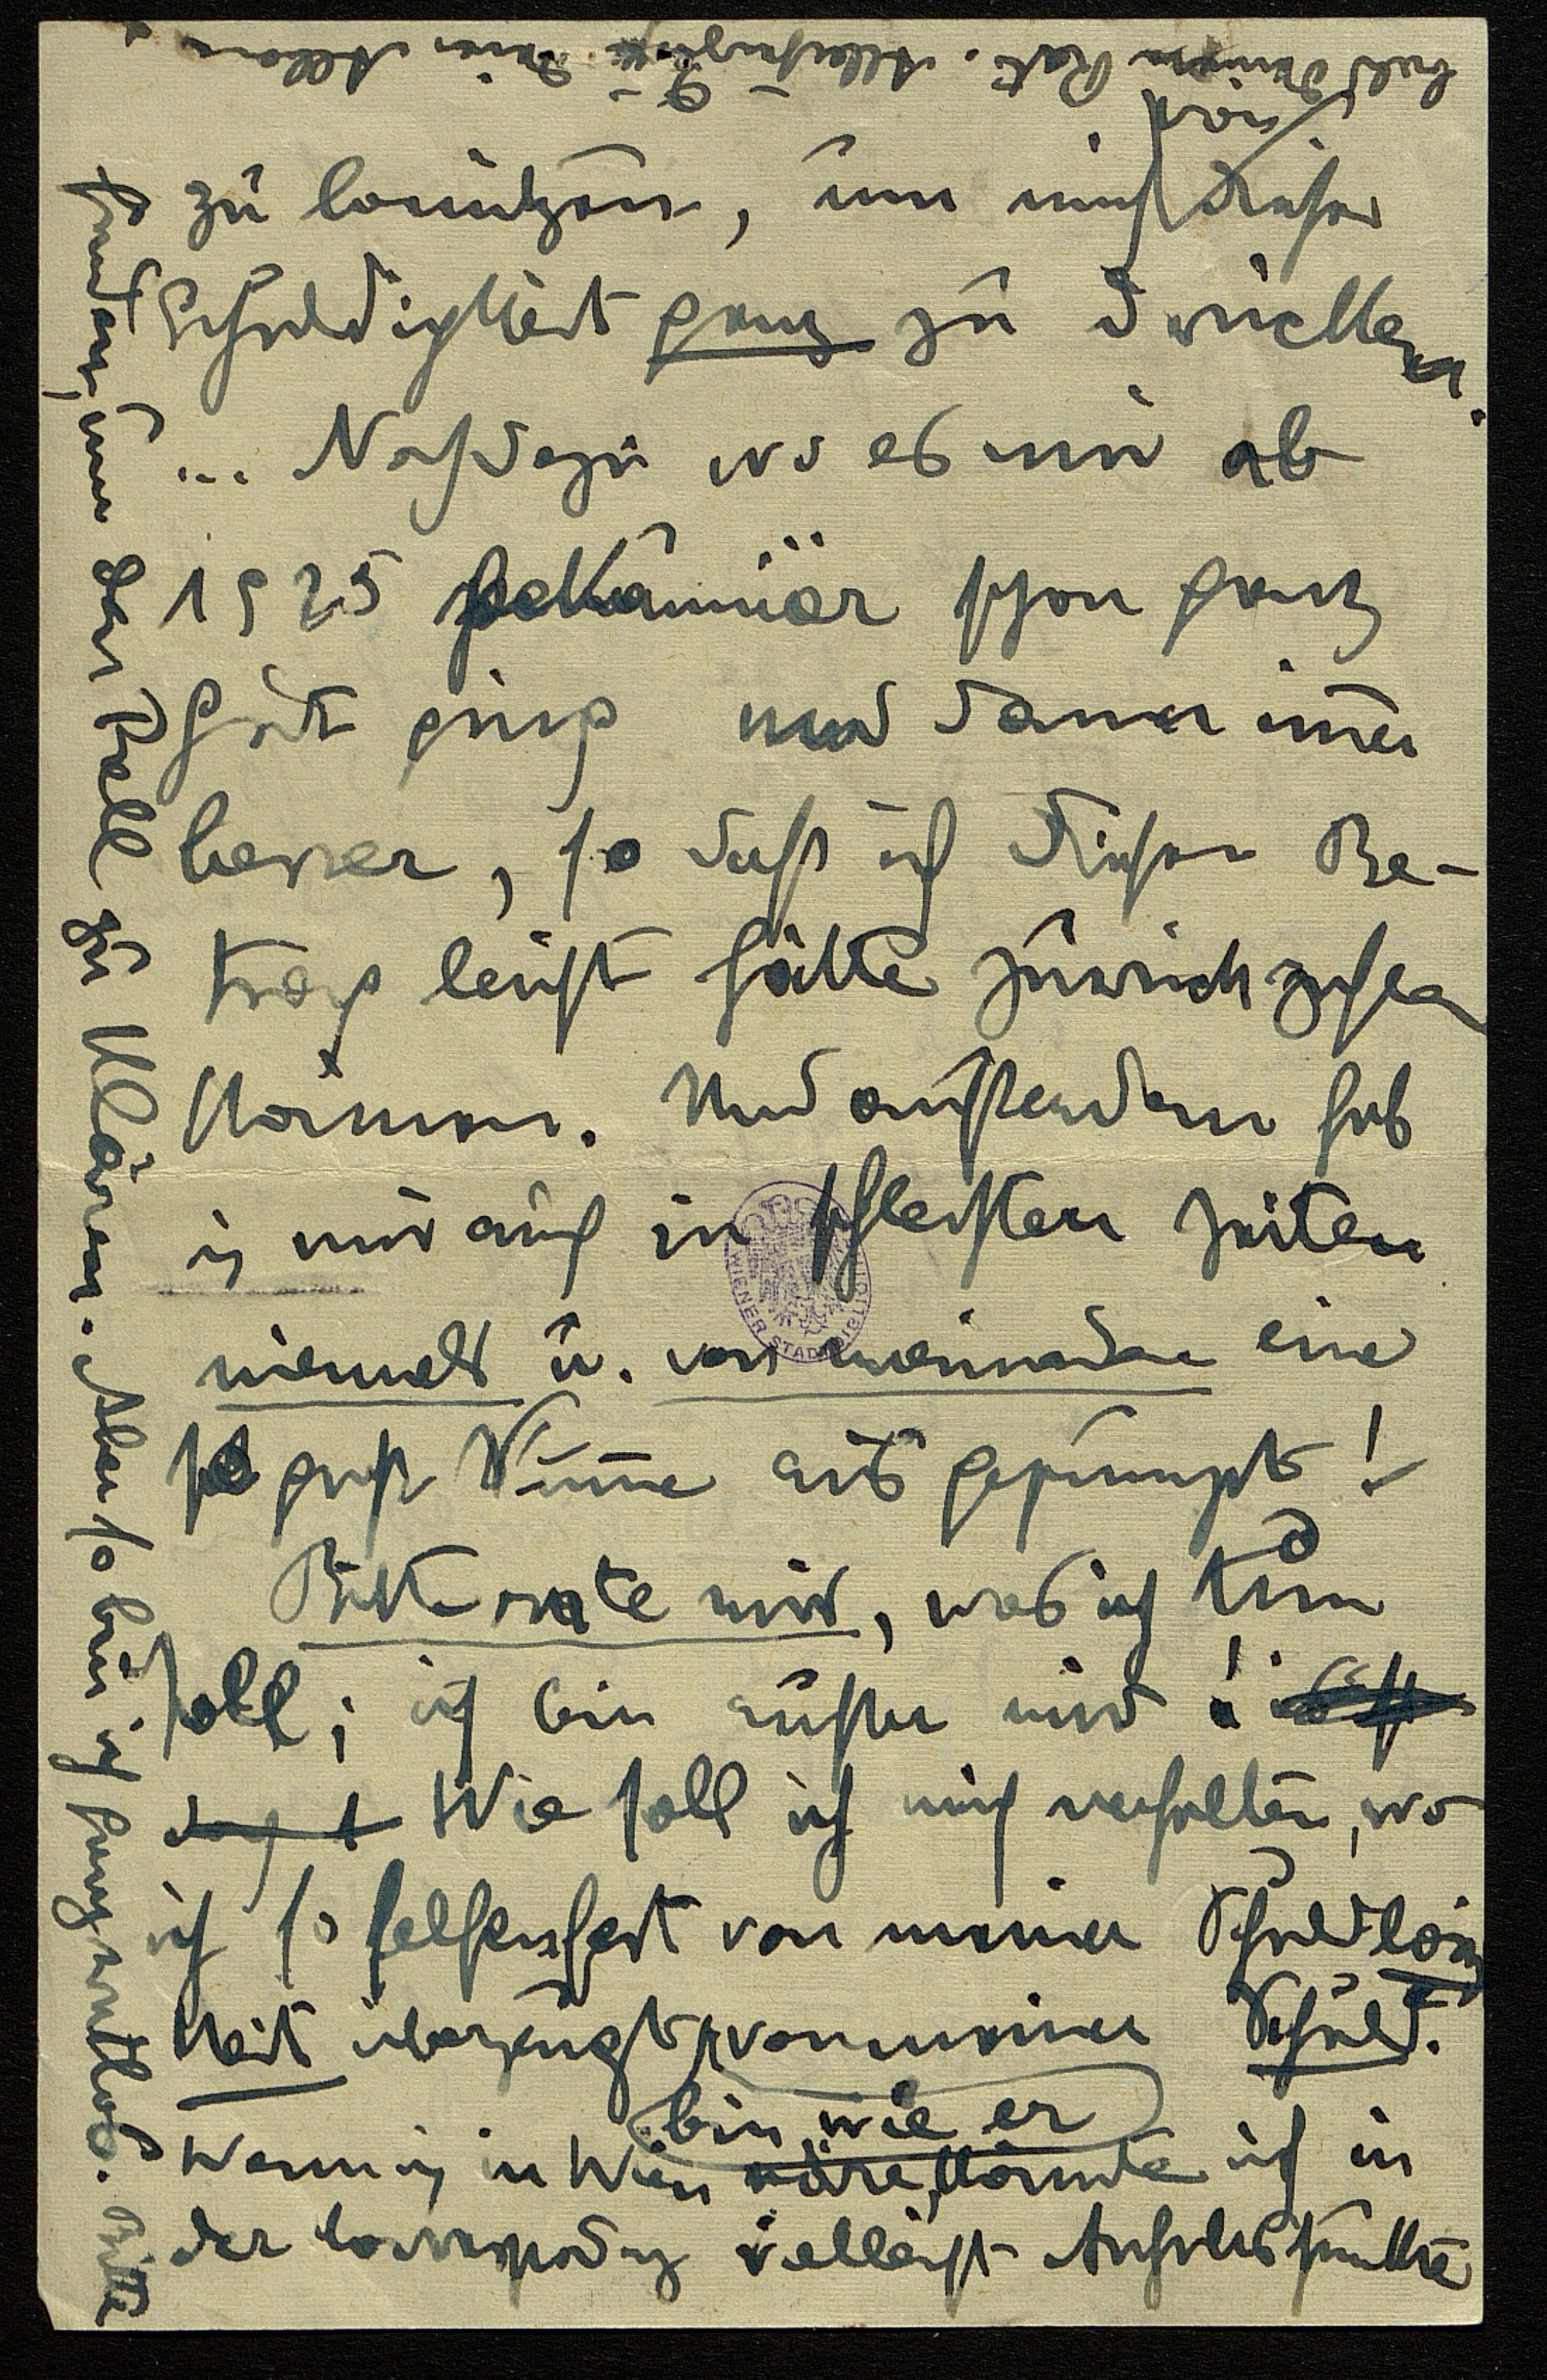 zu benützen, um mich vor dieser
Schuldigkeit ganz zu drücken.
... Noch dazu wo es mir ab
1925 pekuniär schon ganz
gut ging und dann immer
besser, so dass ich diesen Be-
trag leicht hätte zurückzahlen
können. Und ausserdem hab
ich mir auch in schlechten Zeiten
niemals u. von niemandem eine
so grosse Summe ausgepumpt!
Bitte rate mir, was ich tun
soll; ich bin ausser mir!
Wie soll ich mich verhalten, wo
ich so felsenfest von meiner Schuldlosig-
keit überzeugt bin, wie er von meiner Schuld.
Wenn ich in Wien wäre, könnte ich in
der Correspondenz vielleicht Anhaltspunkte
finden, um den Fall zu klären. Aber so bin ich ganz ratlos. Bitte
bald Deinen Rat. Allerherzlichst Deine Albans
WIENER STADTBIBLIOTHEK